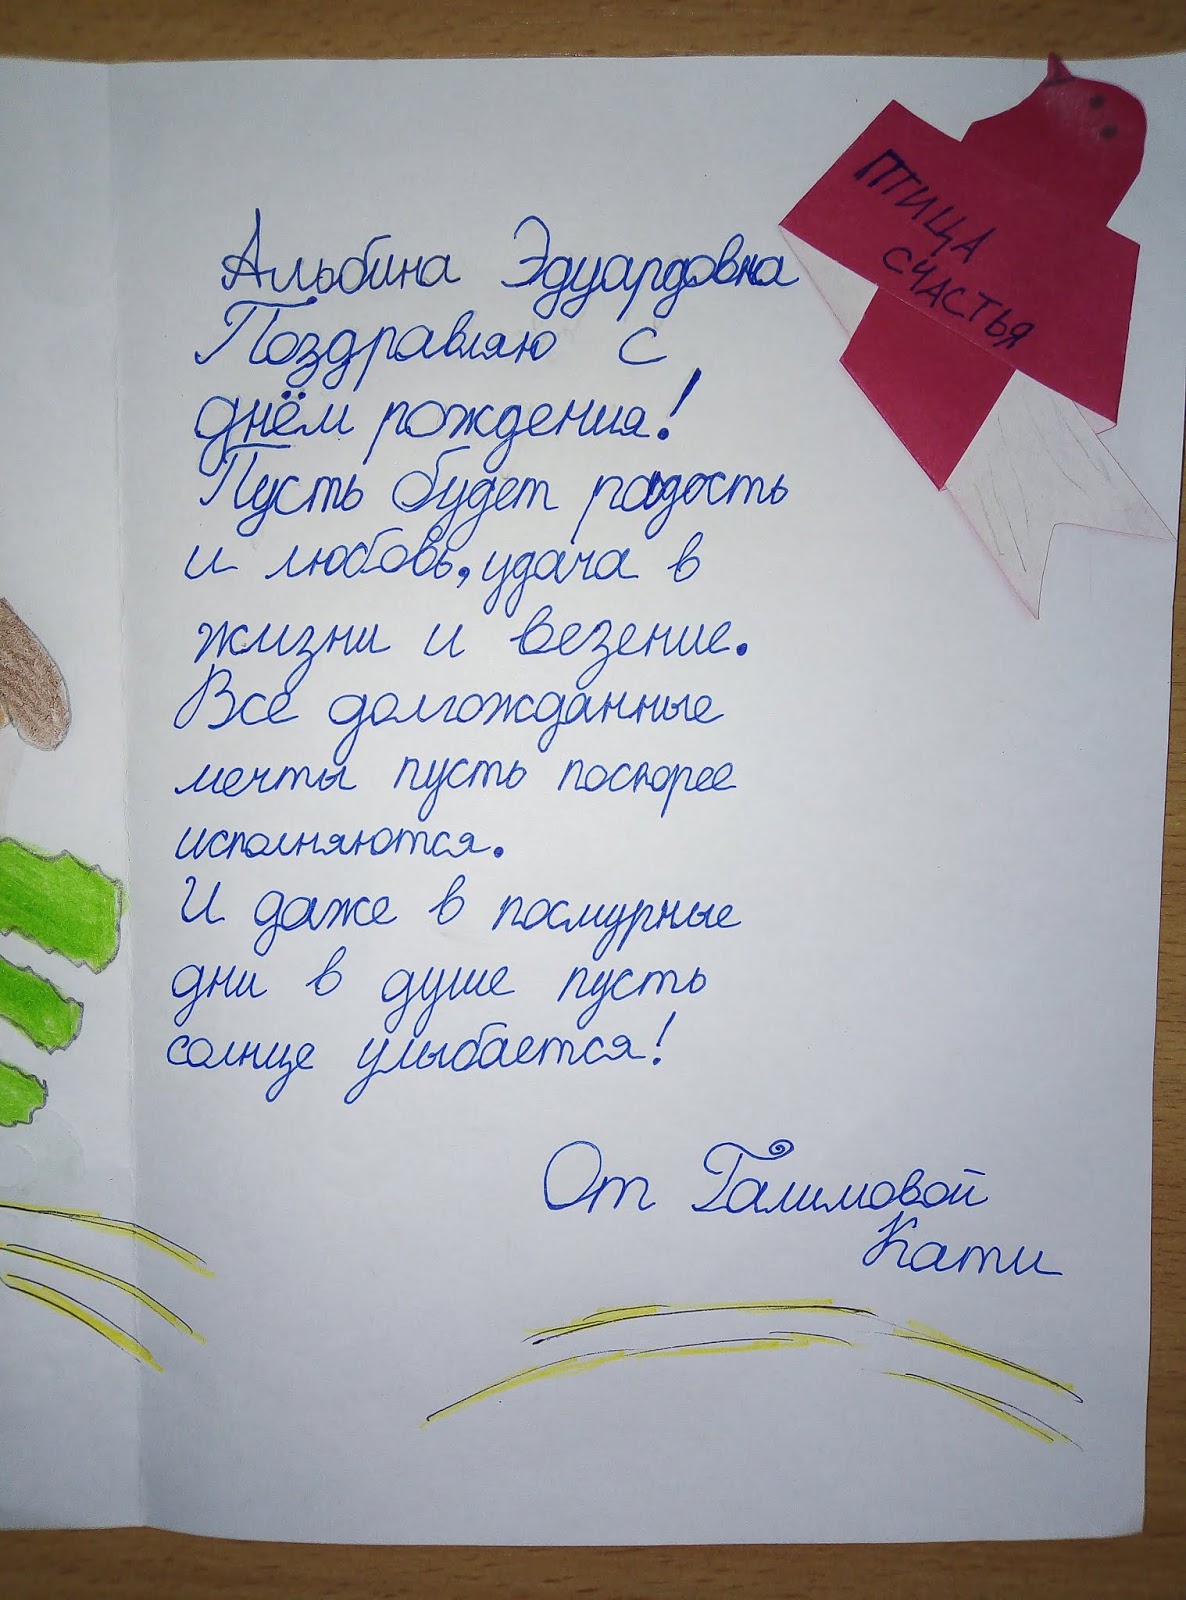 ПТИЦА
СЧАСТЬЯ
Альбина Эдуардовна
Поздравляю с
днём рождения!
Пусть будет радость
и любовь, удача в
жизни и везение.
Все долгожданные
мечты пусть поскорее
исполняются.
И даже в посмурные
дни в душе пусть
солнце улыбается!
От Галимовой
Кати